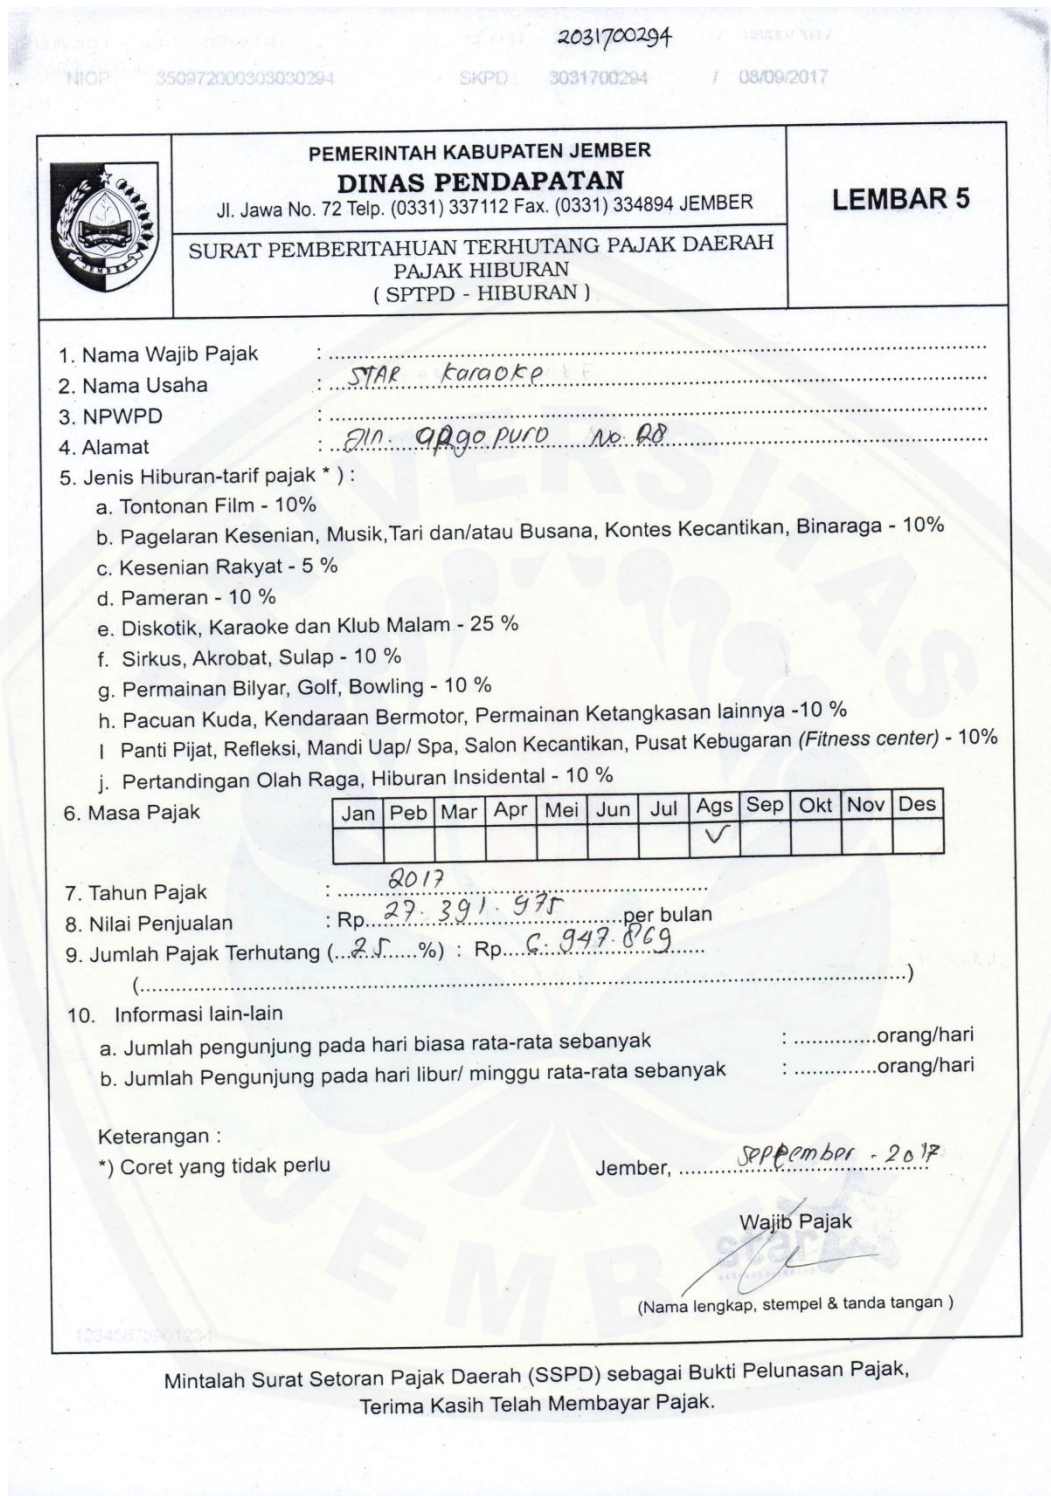 2031700294
NIOP 350972000303030294 SKPD : 3031700294 / 08/09/2017
PEMERINTAH KABUPATEN JEMBER
DINAS PENDAPATAN
Jl. Jawa No. 72 Telp. (0331) 337112 Fax. (0331) 334894 JEMBER
LEMBAR 5
SURAT PEMBERITAHUAN TERHUTANG PAJAK DAERAH
PAJAK HIBURAN
( SPTPD - HIBURAN )
JEMBER
1. Nama Wajib Pajak : ..........
2. Nama Usaha : STAR karaoke
3. NPWPD : ..........
4. Alamat : Jln. argopuro No. 28
5. Jenis Hiburan-tarif pajak * ) :
a. Tontonan Film - 10%
b. Pagelaran Kesenian, Musik,Tari dan/atau Busana, Kontes Kecantikan, Binaraga - 10%
c. Kesenian Rakyat - 5 %
d. Pameran - 10 %
e. Diskotik, Karaoke dan Klub Malam - 25 %
f. Sirkus, Akrobat, Sulap - 10 %
g. Permainan Bilyar, Golf, Bowling - 10 %
h. Pacuan Kuda, Kendaraan Bermotor, Permainan Ketangkasan lainnya -10 %
I Panti Pijat, Refleksi, Mandi Uap/ Spa, Salon Kecantikan, Pusat Kebugaran (Fitness center) - 10%
j. Pertandingan Olah Raga, Hiburan Insidental - 10 %
6. Masa Pajak Jan Peb Mar Apr Mei Jun Jul Ags Sep Okt Nov Des
✓
7. Tahun Pajak : 2017
8. Nilai Penjualan : Rp. 27.391.975 per bulan
9. Jumlah Pajak Terhutang (...25...%) : Rp. 6.947.869
(..........)
10. Informasi lain-lain
a. Jumlah pengunjung pada hari biasa rata-rata sebanyak : ..............orang/hari
b. Jumlah Pengunjung pada hari libur/ minggu rata-rata sebanyak : ..............orang/hari
Keterangan :
*) Coret yang tidak perlu
Jember, September - 2017
Wajib Pajak
star
(Nama lengkap, stempel & tanda tangan )
Mintalah Surat Setoran Pajak Daerah (SSPD) sebagai Bukti Pelunasan Pajak,
Terima Kasih Telah Membayar Pajak.
UNIVERSITAS JEMBER